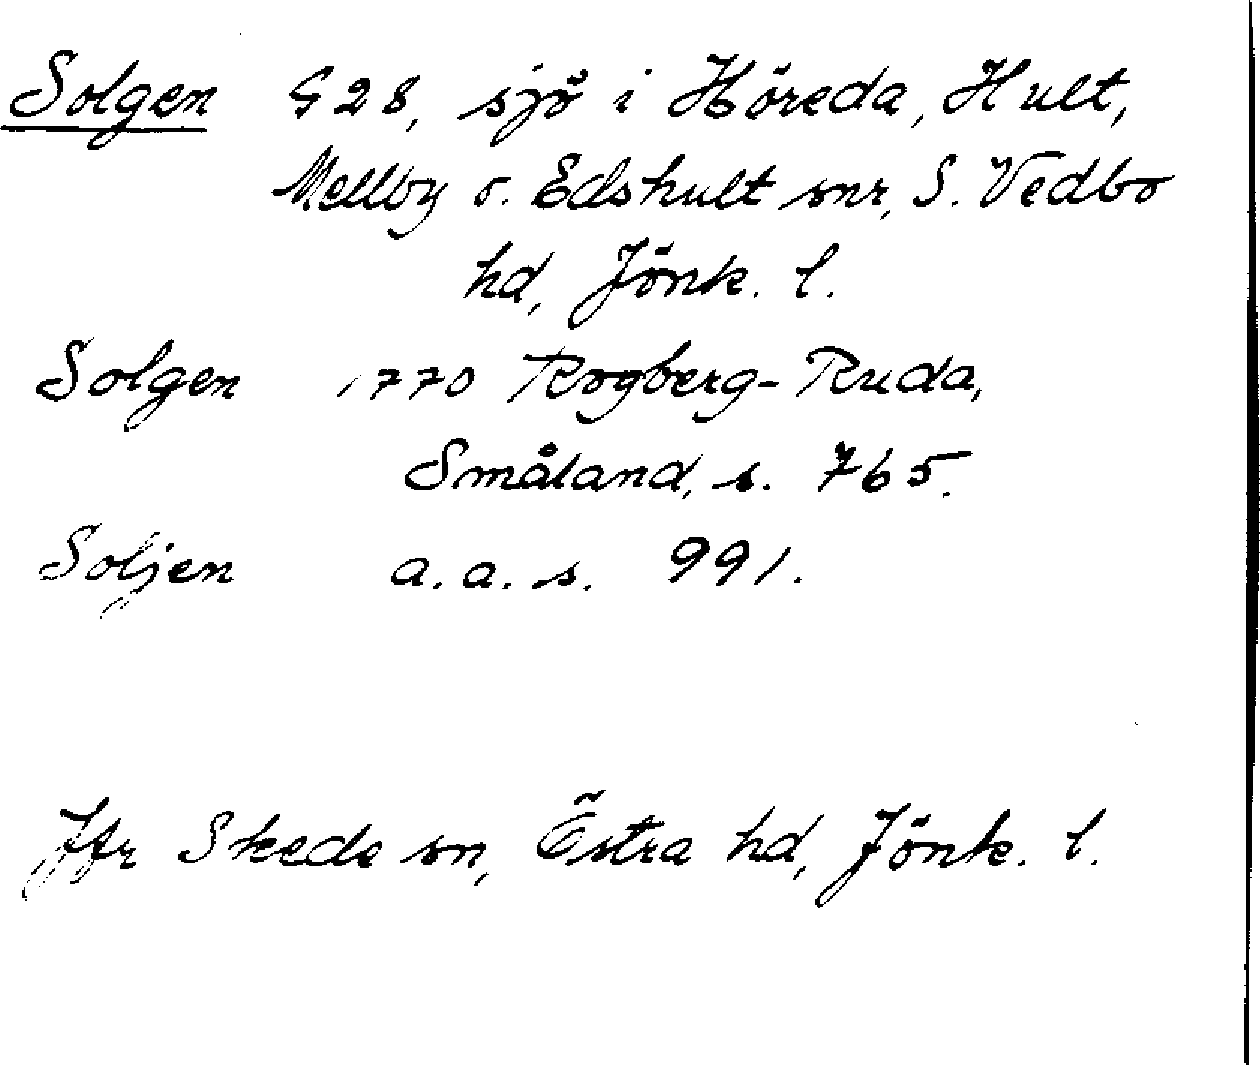 Solgen G28, sjö i Höreda, Hult,
Mellby o. Edshult snr, S. Vedbo
hd, Jönk. l.
Solgen 1770 Rogberg-Ruda,
Småland, s. 765.
Soljen a. a. s. 991.
Jfr Skede sn, Östra hd, Jönk. l.